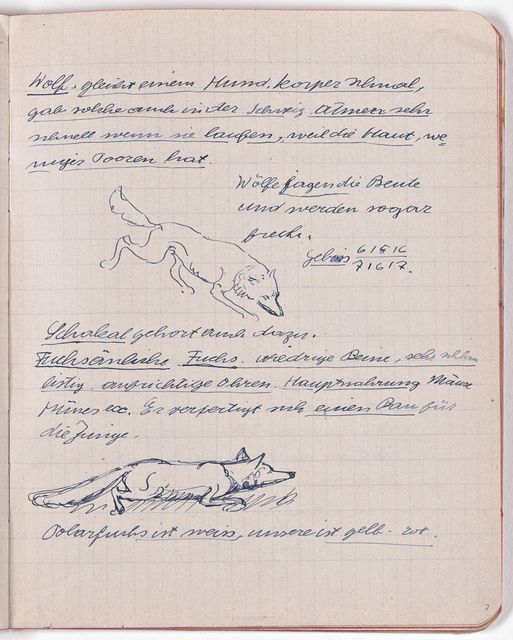 Wolf. gleicht einem Hund, korper schmal,
gab solche auch in der Schweiz. Atmen sehr
schnell wenn sie laufen, weil die Haut, we-
niger Pooren hat.
Wölfe jagen die Beute
und werden sogar
frech.
Gebiss 6 1 5 1 6
7 1 6 1 7.
Schakal gehort auch dazu.
Fuchsänliche Fuchs. niedrige Beine, sehr schlau
listig. aufrichtige Ohren. Hauptnahrung Mäuse
ecc. Er verfertigt sich einen Bau für
die Junge.
Polarfuchs ist weiss, unsere ist gelb-rot.
7